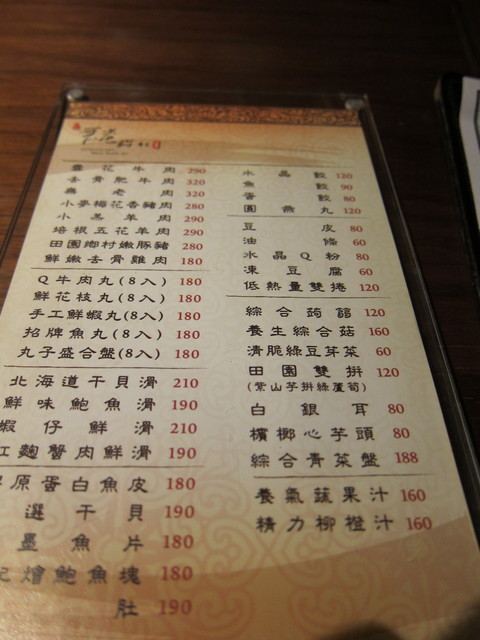 雪花牛肉 290
去骨肥牛肉 320
無老肉 320
小夢梅花香豬肉 280
小羔羊肉 290
培根五花羊肉 290
田園鄉村嫩豚豬 280
鮮嫩去骨雞肉 180
Q牛肉丸(8入) 180
鮮花枝丸(8入) 180
手工鮮蝦丸(8入) 180
招牌魚丸(8入) 180
丸子盛合盤(8入) 180
北海道干貝滑 210
鮮味鮑魚滑 190
蝦仔鮮滑 210
紅麴蟹肉鮮滑 190
原蛋白魚皮 180
選干貝 190
墨魚片 180
燴鮑魚塊 180
肚 190
水晶餃 120
魚餃 90
蛋餃 80
團燕丸 120
豆皮 80
油條 60
水晶Q粉 80
凍豆腐 60
低熱量雙捲 120
綜合蒟蒻 120
養生綜合菇 160
清脆綠豆芽菜 60
田園雙拼 120
(紫山芋拼綠蘆筍)
白銀耳 80
檳榔心芋頭 80
綜合青菜盤 188
養氣蔬果汁 160
精力柳橙汁 160